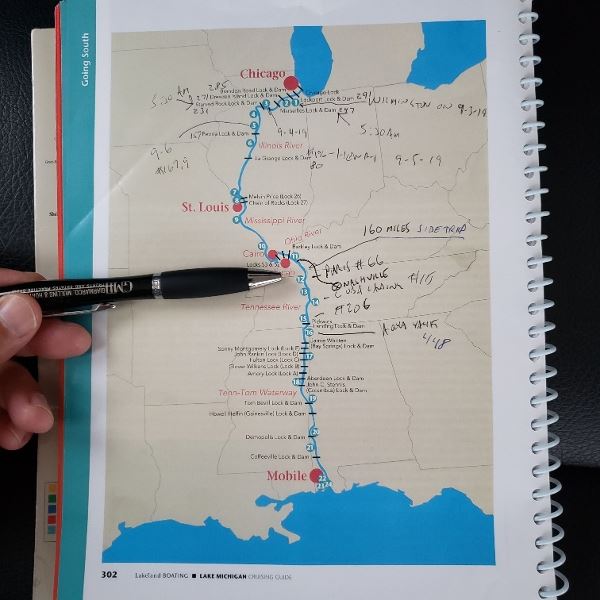 Going South
Chicago
Chicago Lock
Lockport Lock & Dam 291
WILMINGTON ON 9-3-19
285
Brandon Road Lock & Dam
5:30 AM
271 Dresden Island Lock & Dam
Starved Rock Lock & Dam
231
Marseilles Lock & Dam 247
5:30AM
157 Peoria Lock & Dam
9-4-19
Illinois River
9-6
La Grange Lock & Dam
80
9-5-19
7
Melvin Price (Lock 26)
8
Chain of Rocks (Lock 27)
St. Louis
9
Mississippi River
160 MILES SIDE TRIP
Ohio River
10
Barkley Lock & Dam
Cairo
11
PARIS #66
12
NASHVILLE
13
14
#206
Tennessee River
15
Pickwick
Landing Lock & Dam
AQUA YACHT
448
16
Jamie Whitten
(Bay Springs) Lock & Dam
17
Sonny Montgomery Lock (Lock E)
John Rankin Lock (Lock D)
Fulton Lock (Lock C)
Glover Wilkins Lock (Lock B)
Amory Lock (Lock A)
18
Aberdeen Lock & Dam
John C. Stennis
(Columbus) Lock & Dam
Tenn-Tom Waterway
19
Tom Bevill Lock & Dam
Howell Heflin (Gainesville) Lock & Dam
20
Demopolis Lock & Dam
21
Coffeeville Lock & Dam
Mobile
22
23
24
302 Lakeland BOATING ■ LAKE MICHIGAN CRUISING GUIDE